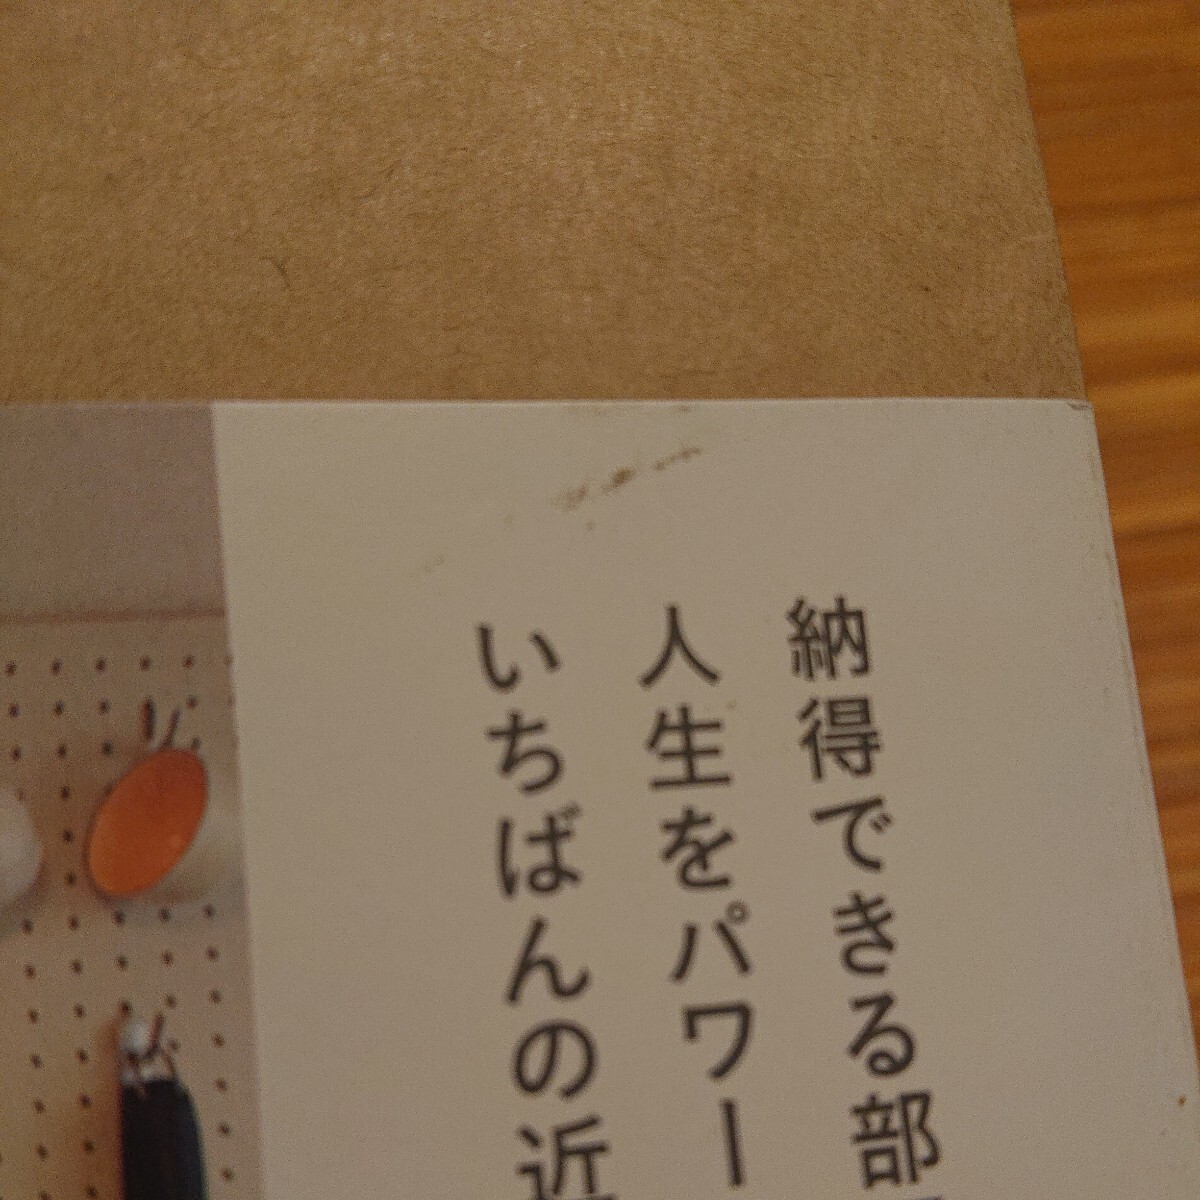 納得できる部
人生をパワー
いちばんの近